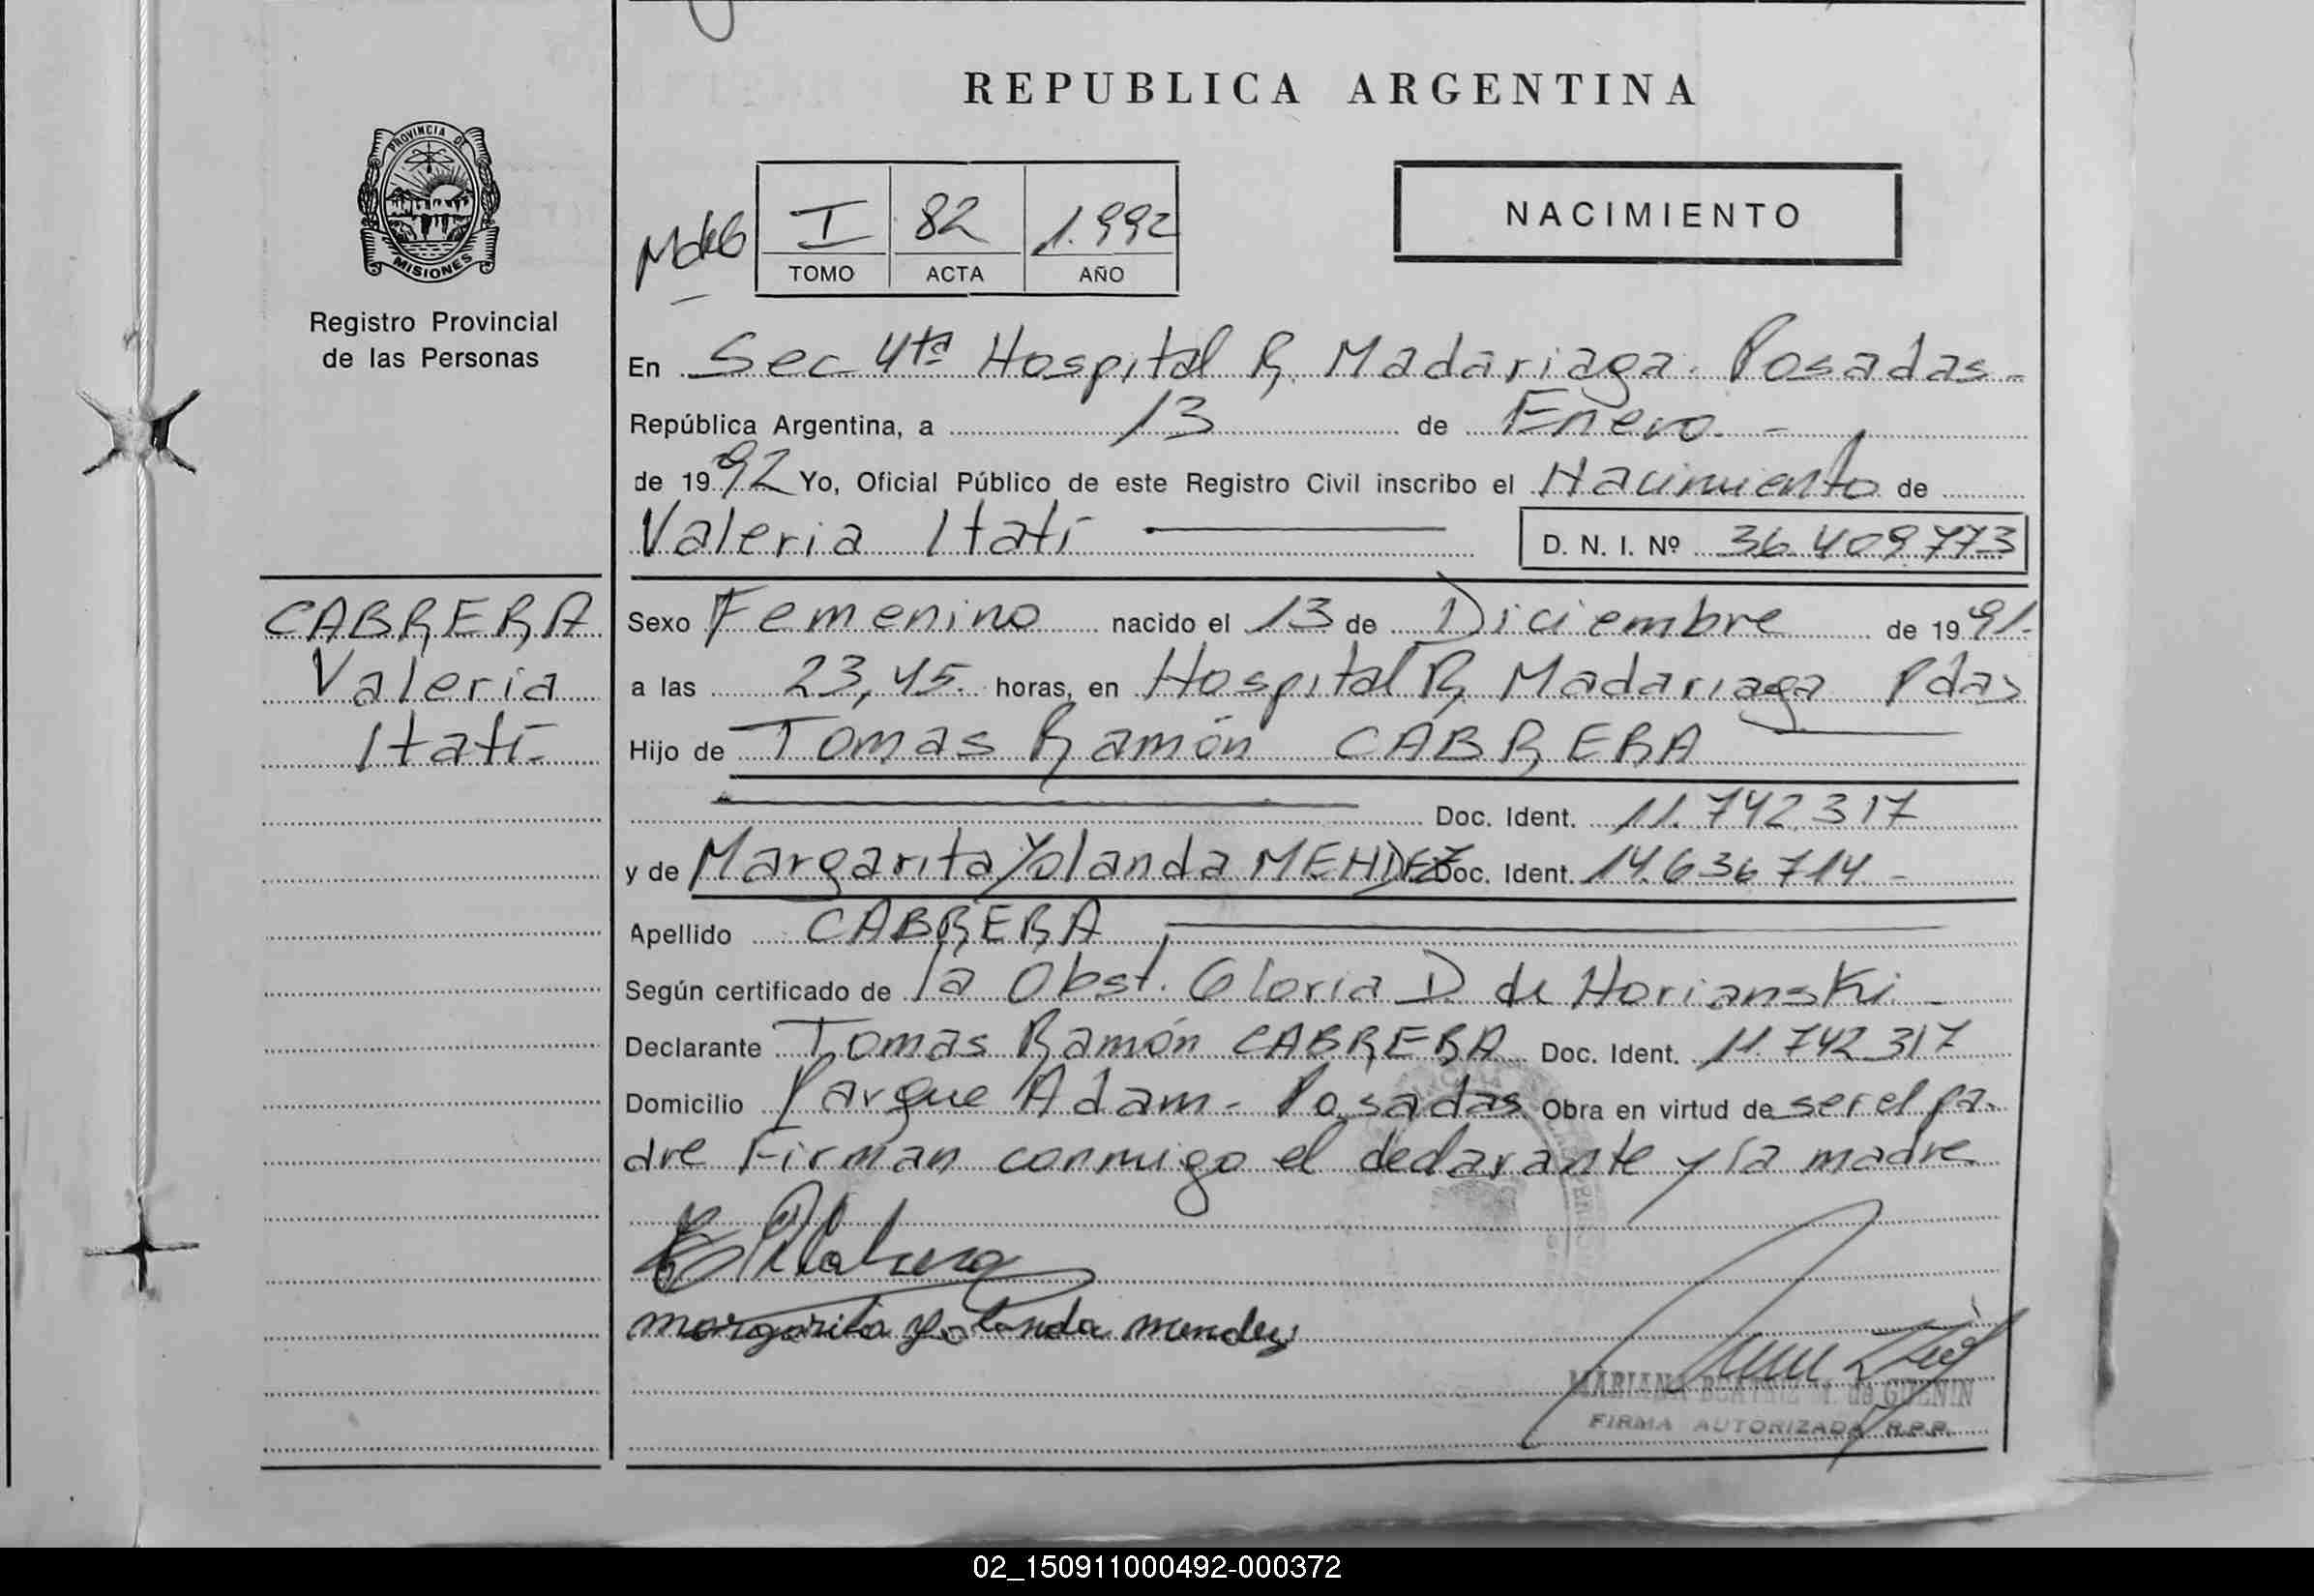 REPUBLICA ARGENTINA
PROVINCIA DE
MISIONES
Registro Provincial
de las Personas
I 82 1.992
TOMO ACTA AÑO
NACIMIENTO
En Sec 4ta Hospital R. Madariaga. Posadas -
República Argentina, a 13 de Enero. -
de 1992 Yo, Oficial Público de este Registro Civil inscribo el Nacimiento de
Valeria Itatí
D. N. I. Nº 36.409.773
CABRERA
Valeria
Itatí -
Sexo Femenino nacido el 13 de Diciembre de 1991.
a las 23,45. horas, en Hospital R. Madariaga Pdas
Hijo de Tomas Ramón CABRERA
Doc. Ident. 11.742.317
y de Margarita Yolanda MENDEZ Doc. Ident. 14.636.714 -
Apellido CABRERA
Según certificado de la Obst. Gloria D. de Horianski -
Declarante Tomas Ramón CABRERA Doc. Ident. 11.742.317
Domicilio Parque Adam - Posadas Obra en virtud de ser el pa-
dre Firman conmigo el declarante y la madre
margarita yolanda mendez
MARIANA BEATRIZ
FIRMA AUTORIZADA R.P.P.
02_150911000492-000372